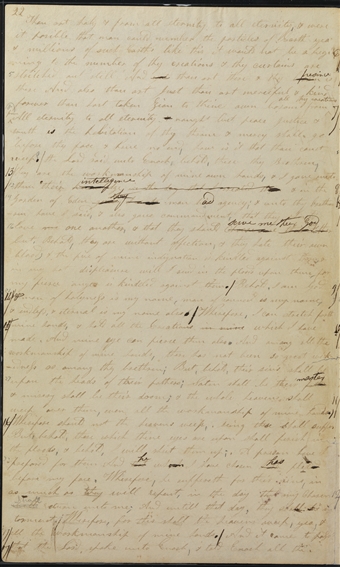 22
thou art holy & from all eternity to all eternity, & were
it possible that man could number the particles of Earth yea
& millions of earths like this it would not be a begin
ning to the number of thy creations & thy curtains are
stretched out still And thou art there & thy bosom is
there And also thou art Just thou art merciful & kind
forever thou hast taken Zion to thine own bosom from all thy creations
all eternity to all eternity & naught but peace
is the habitation of thy throne & mercy shall go
before thy face & have no end how is it that thou canst
weep/ The Lord said unto Enoch, behold, these thy brethren,
they are the workmanship of mine own hands, & I gave unto
them their intelligence in the
Garden of Eden man agency & unto thy brethren
have I said, & also gave commandment, that they should
love one another, & that they should serve me their God
But, Behold, they are without affection, & they hate their own
blood; & the fire of mine indignation is kindled against them
& in my hot displeasure will I send in the floods upon them, for
my fierce anger is kindled against them/ Behold, I am God,
man of holiness is my name, man of council is my name,
& endless & eternal is my name also/ Wherefore, I can stretch forth
mine hands, & hold all the Creations which I have
made. And mine eye can pierce them also. And among all the
workmanship of mine hands, there has not been so great
wickedness as among thy brethren; But, behold, their sins shall be
upon the heads of their fathers; Satan shall be their master
& misery shall be their doom; & the whole heavens shall
weep over them, even all the workmanship of mine hands/
Wherefore should not the heavens weep, seeing these shall suffer
But, behold, these which thine eyes are upon shall perish in
the floods, & behold, I will shut them up; A prison have I
prepared for them he whom I have chosen has
before my face. Wherefore, he suffereth for their sins, in
as much as they will repent, in the day that my chosen
shall return unto me; And until that day, they shall be in
torment/ Wherefore, for this shall the heavens weep, yea, &
all the workmanship of mine hands/ And it came to pass
that the Lord, spake unto Enoch, & told Enoch all the